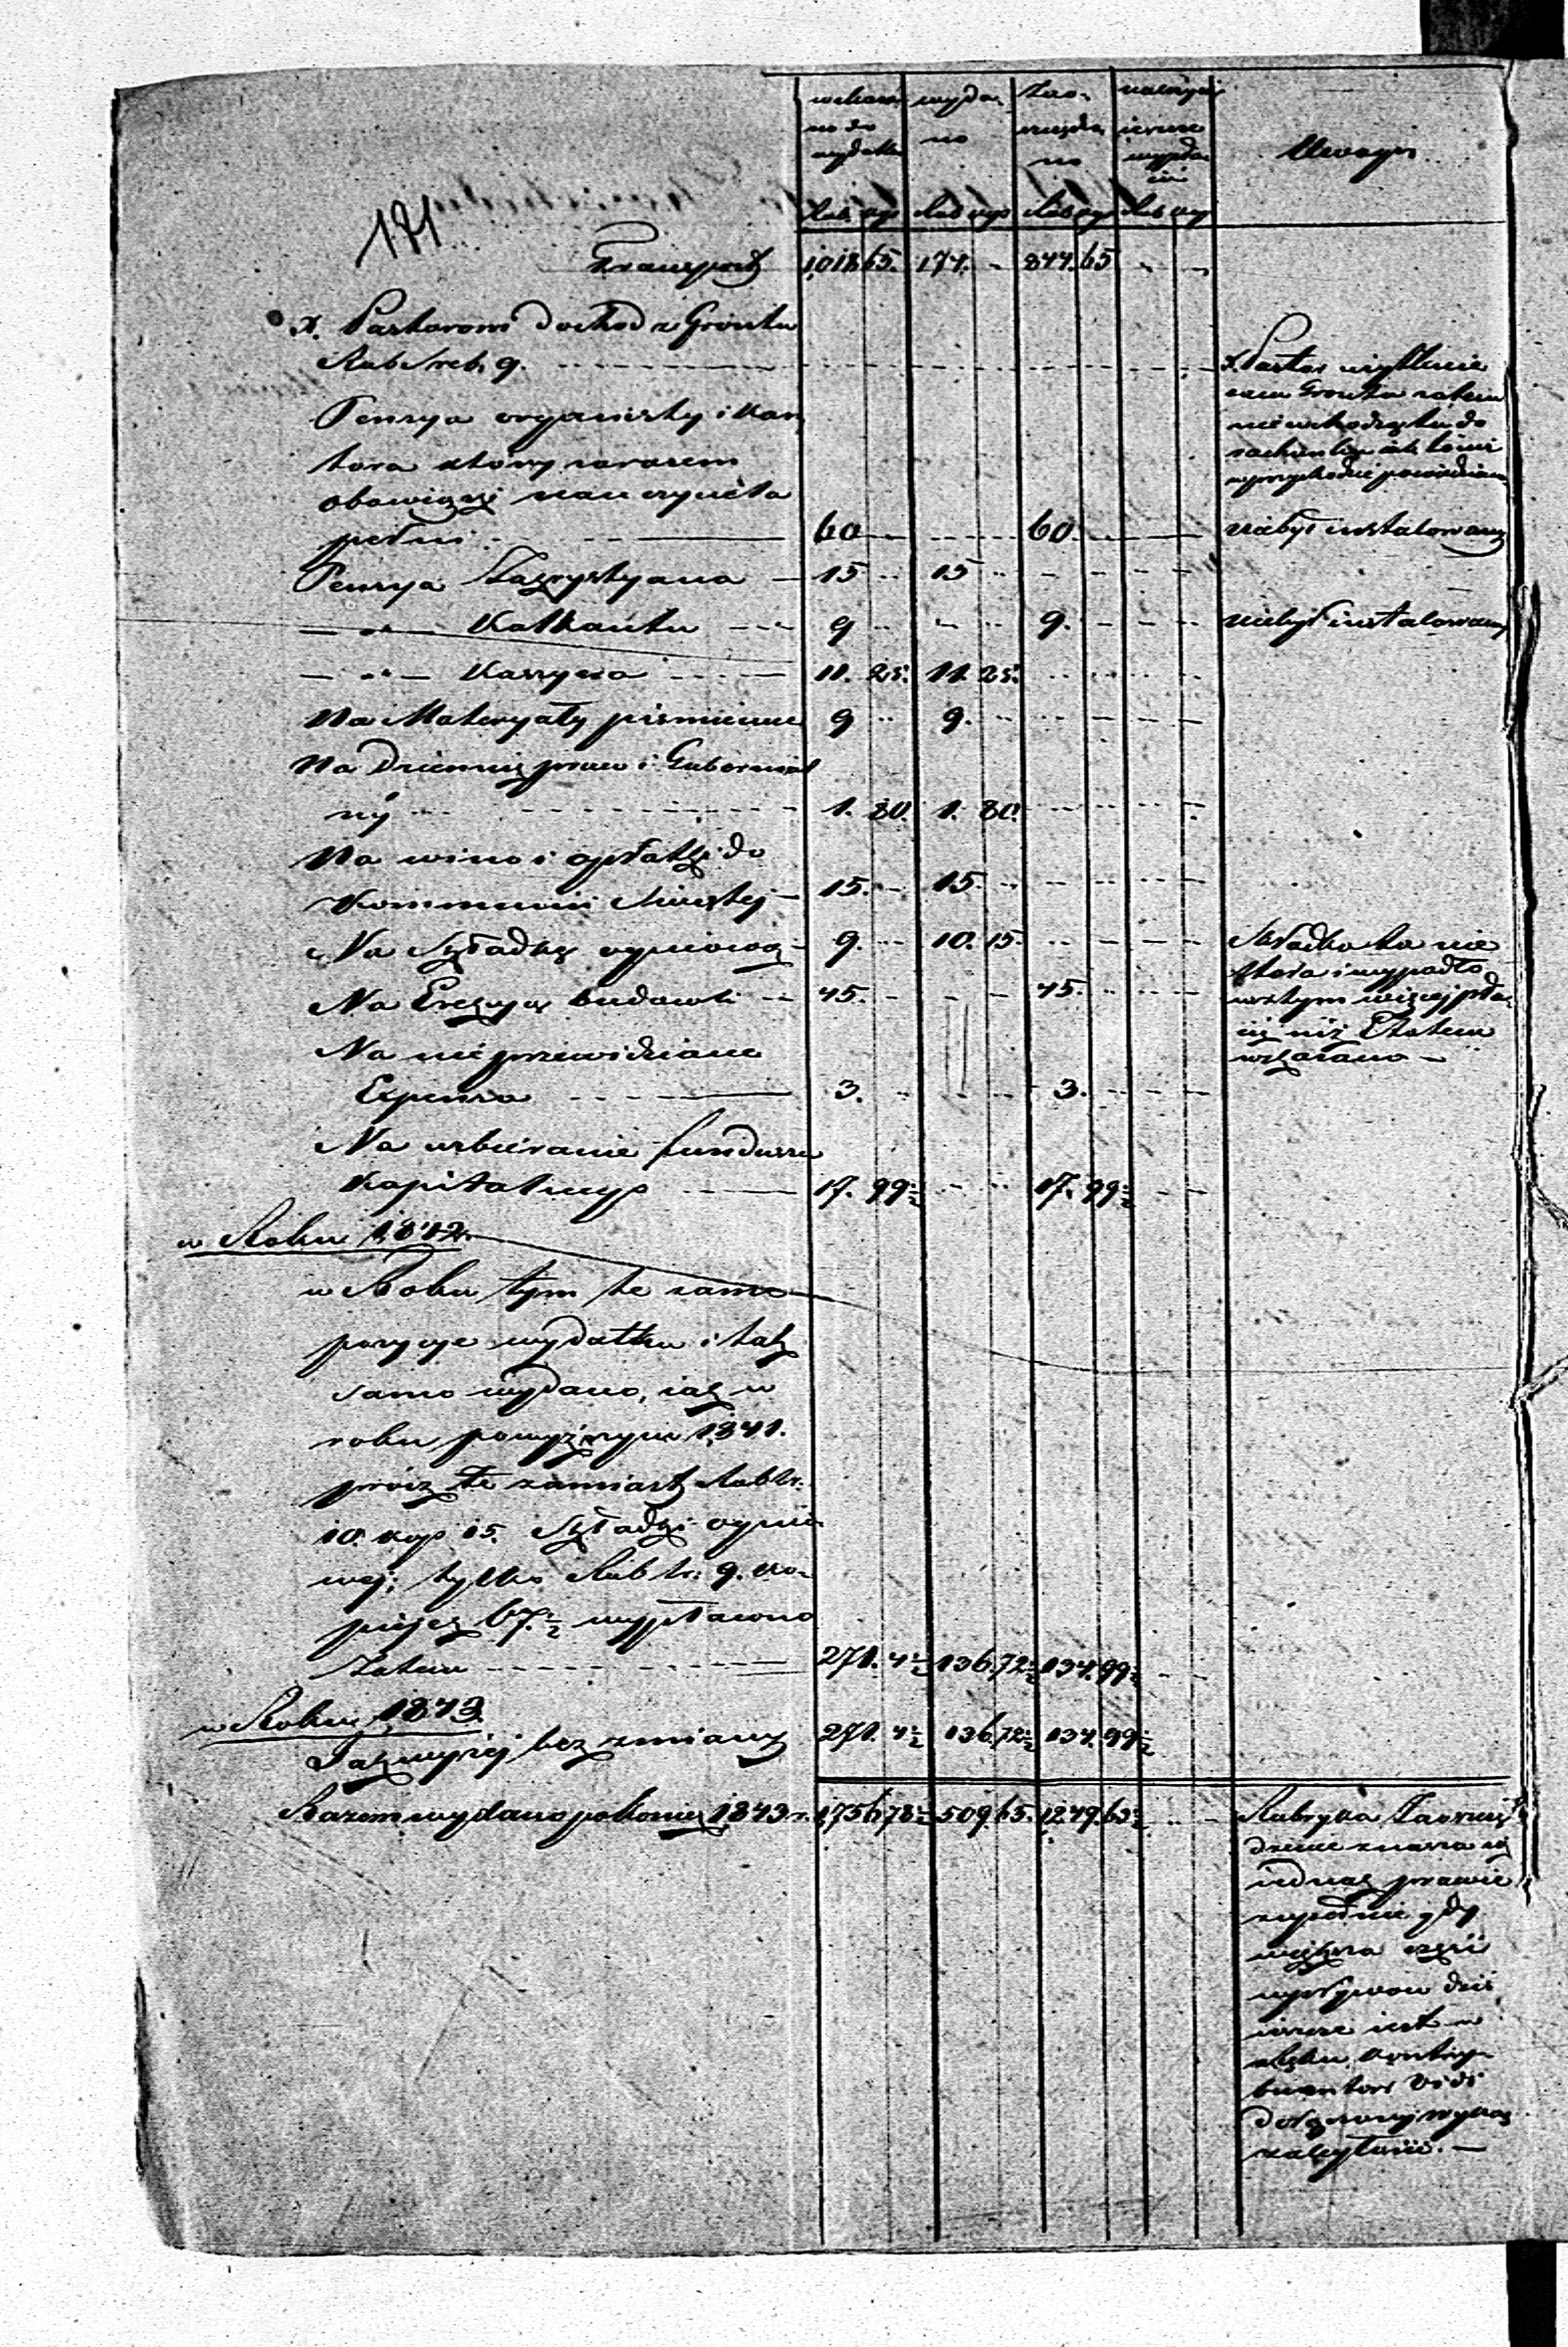 wskaza
no do
wydatku
wyda,
no
Zao,
szczędzo
no
należy się
jeszcze
wypła
cić
Uwagi
Rub. kop Rub kop Rub kop Rub kop
181
Transport 1,018 65. 174. - 844. 65
X. Pastorowi dochod z Gruntu
Rub Sreb. 9.
X. Pastor użytkuie
sam Grunta zatem
nie wchodzą tu do
Pensya organisty i Kan
tora który zarazem
obowiązki nauczyciela
pełni 60 60 niebył instalowany
Pensya Zagrystyana 15 15
Kalkanta 9 9. niebył instalowany
Kassyera 11. 25. 11. 25.
Na Materyały piśmienne 9 9.
Na Dziennik praw i Gubernial
ny 1. 80. 1. 80.
Na wino i opłatki do
Kommunii Swiętej 15. 15.
Na Składkę ogniową 9. 10. 15.
Składka ta nie
stała i wypadło
w tym więcej pła,
cić niż Etatem
wskazano
Na Erekcyą budowli 45. 45.
Na nieprzewidziane
Expensa 3. 3.
Na uzbieranie funduszu
Kapitalnego 17. 99½ 17. 99½
w Roku 1842.
w Roku tym te same
pozycye wydatku i tak
samo wydano, iak w
roku powyższym 1841.
prócz że zamiast Rub sr.
10. kop 15. Składki ognio
wej; tylko Rub sr. 9. ko,
piejek 67.½ wypłacono
Zatem 271. 4½ 136. 72½ 134. 99½
w Roku 1843
Jak wyżej bez zmiany 271. 4½ 136. 72½ 134. 99½
Razem wydano po koniec 1843 r. 1,756 78½ 509. 65. 1249. 63½
Rubryka Zaoszczę
dzenie znosi się
iednak prawie
zupełnie gdy
większa część
wpływow dziś
ieszcze iest w
ręku kontry,
buentow vidi
dołączony wykaz
zaległości. -